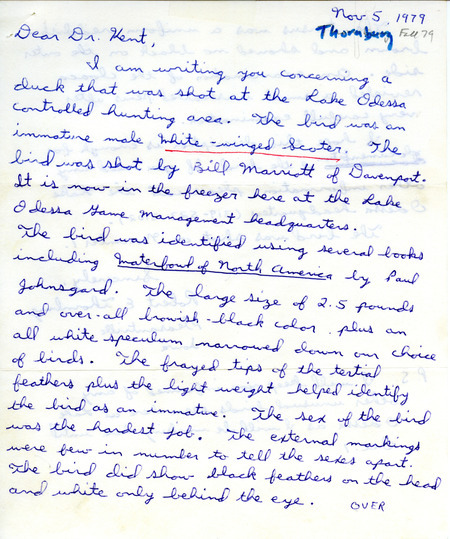 Nov 5, 1979
Thornburg Fall 79
Dear Dr. Kent,
I am writing you concerning a
duck that was shot at the Lake Odessa
controlled hunting area. The bird was an
immature male White-winged Scoter. The
bird was shot by Bill Marriott of Davenport.
It is now in the freezer here at the Lake
Odessa Game Management headquarters.
The bird was identified using several books
including Waterfowl of North America by Paul
Johnsgard. The large size of 2.5 pounds
and over-all brownish-black color plus an
all white speculum narrowed down our choice
of birds. The frayed tips of the tertial
feathers plus the light weight helped identify
the bird as an immature. The sex of the bird
was the hardest job. The external markings
were few in number to tell the sexes apart.
The bird did show black feathers on the head
and white only behind the eye. OVER